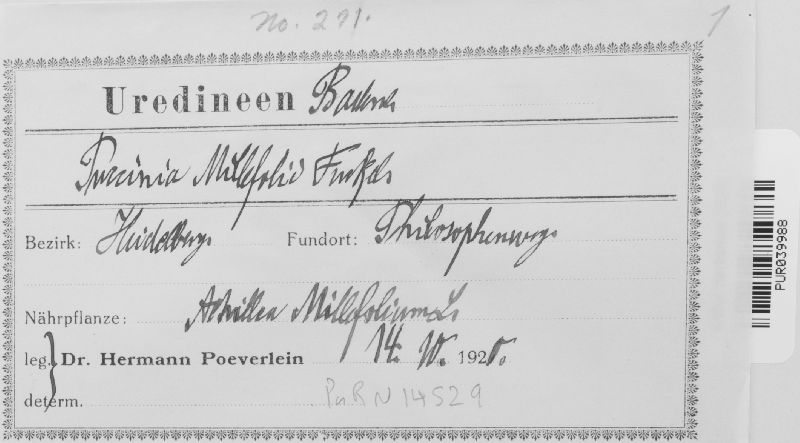 No. 271. 1
Uredineen Badens
Puccinia Millefolii Fuckel
Bezirk: Heidelberg Fundort: Philosophenweg
Nährpflanze: Achillea Millefolium L.
leg. Dr. Hermann Poeverlein 14. IV. 1920.
determ. PuRN14529
PUR039988